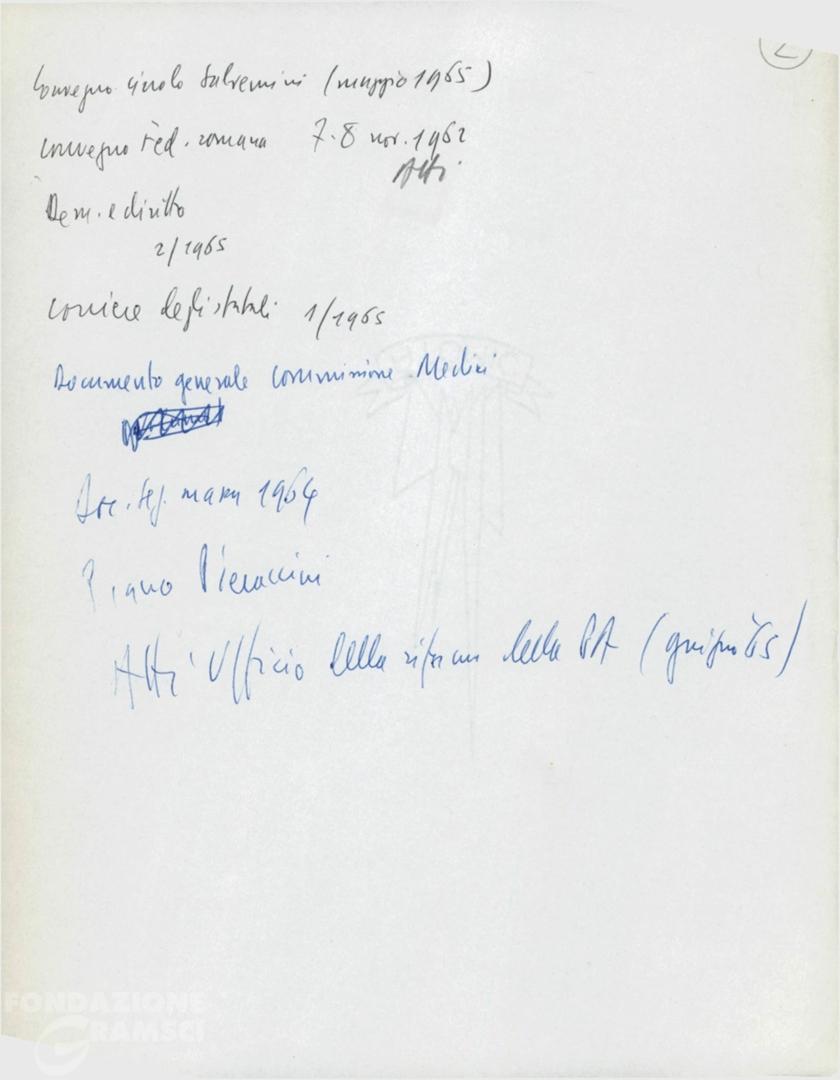 2
Convegno circolo Salvemini (maggio 1965)
Convegno Fed. romana 7-8 nov. 1962
Atti
Dem. e diritto
2/1965
Corriere degli statali 1/1965
Documento generale Commissione Medici
1964
Piano Pieraccini
Atti Ufficio della riforma della PA (giugno '65)
FONDAZIONE
GRAMSCI